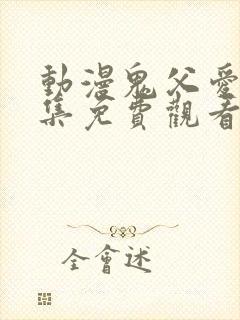 動漫鬼父愛
集免費觀看
全會述